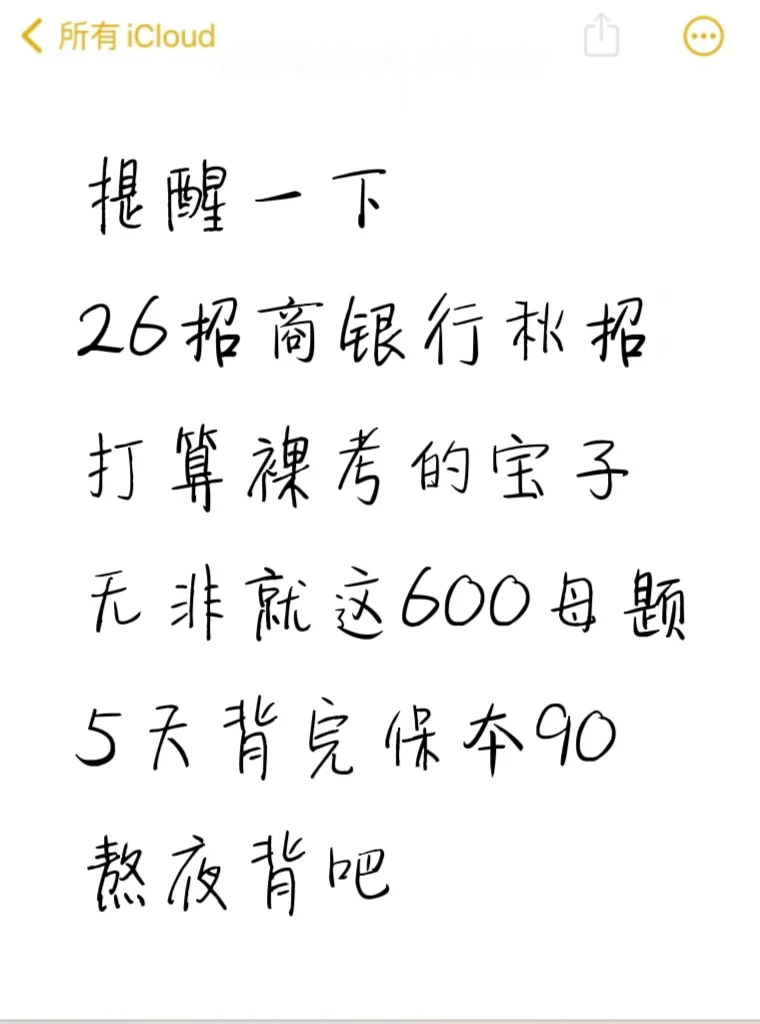 所有 iCloud
提醒一下
26招商银行秋招
打算裸考的宝子
无非就这600母题
5天背完保本90
熬夜背吧